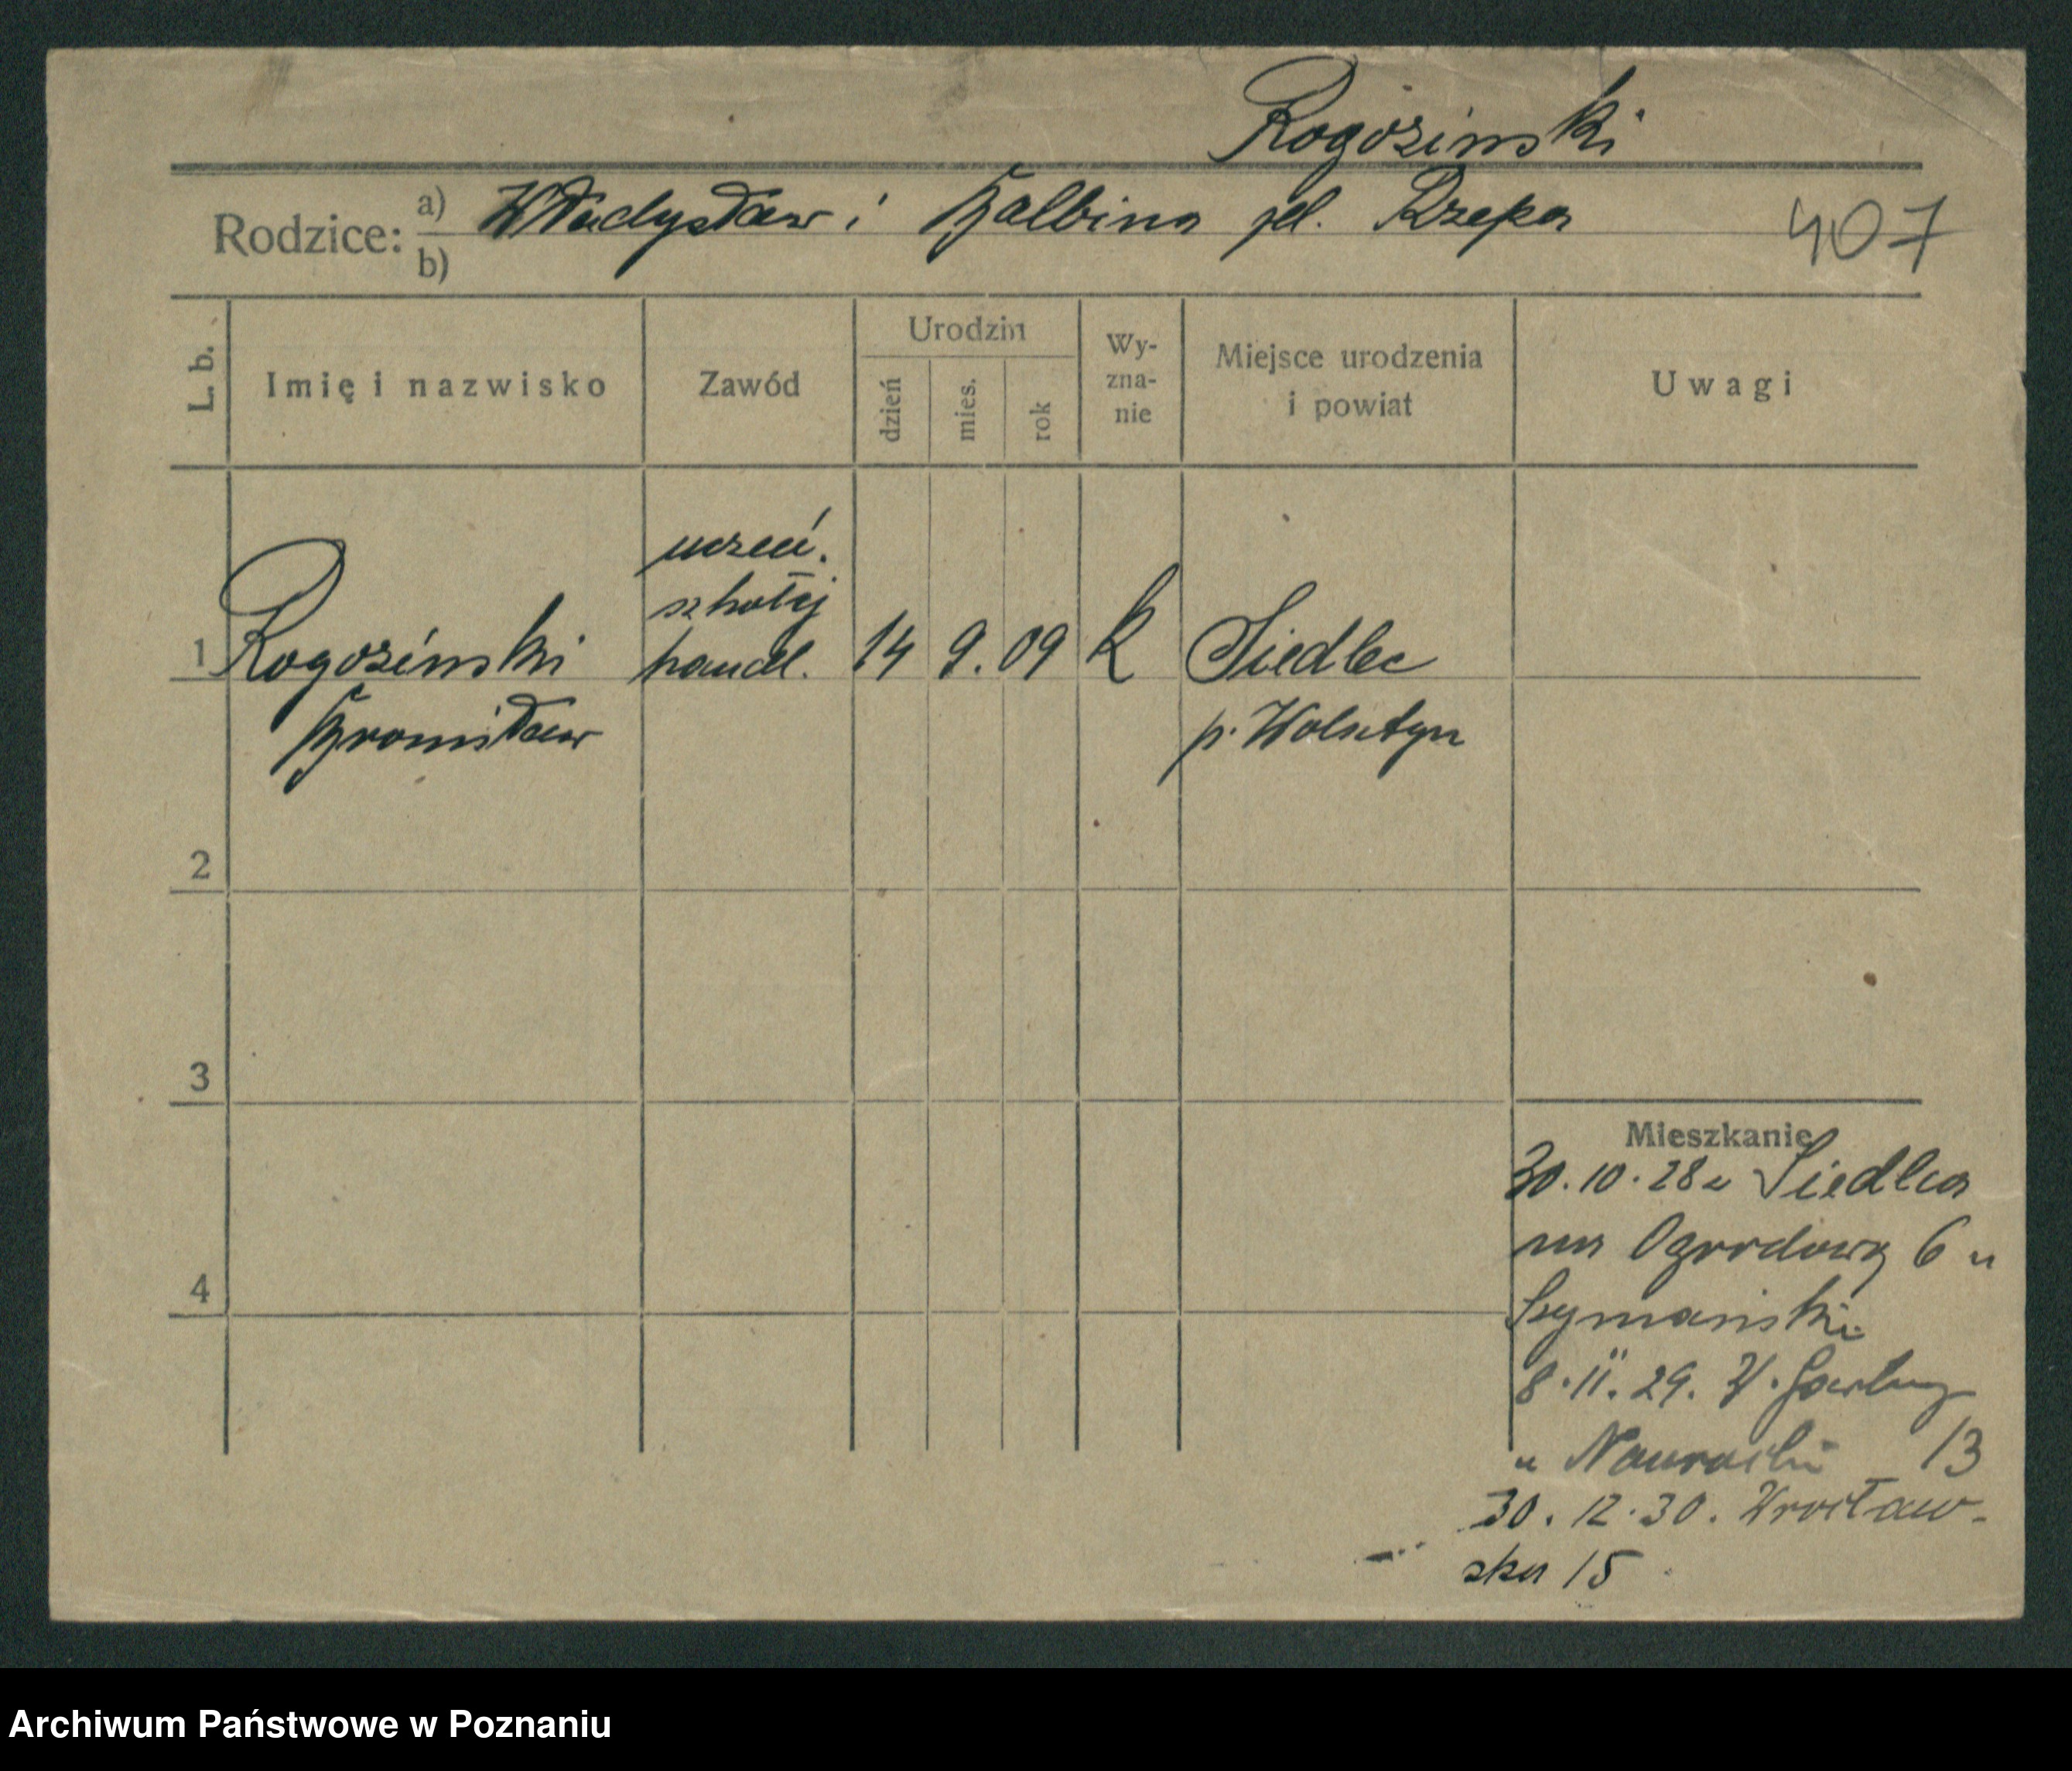 Rogoziński
Rodzice: a) Władysław i Balbina zd. Rzepa
b)
407
L. b.
Imię i nazwisko
Zawód
Urodzin
dzień
mies.
rok
Wy-
zna-
nie
Miejsce urodzenia
i powiat
Uwagi
uczeń.
szkoły
1 Rogoziński handl. 14 9. 09 k Siedlec
Bronisław p. Wolsztyn
2
3
4
Mieszkanie
30.10.28 z Siedlca
na Ogrodową 6 u
Szymański
8.11.29. W. Garbary
u Nawrocki 13
30.12.30. Wrocław-
ska 15
Archiwum Państwowe w Poznaniu